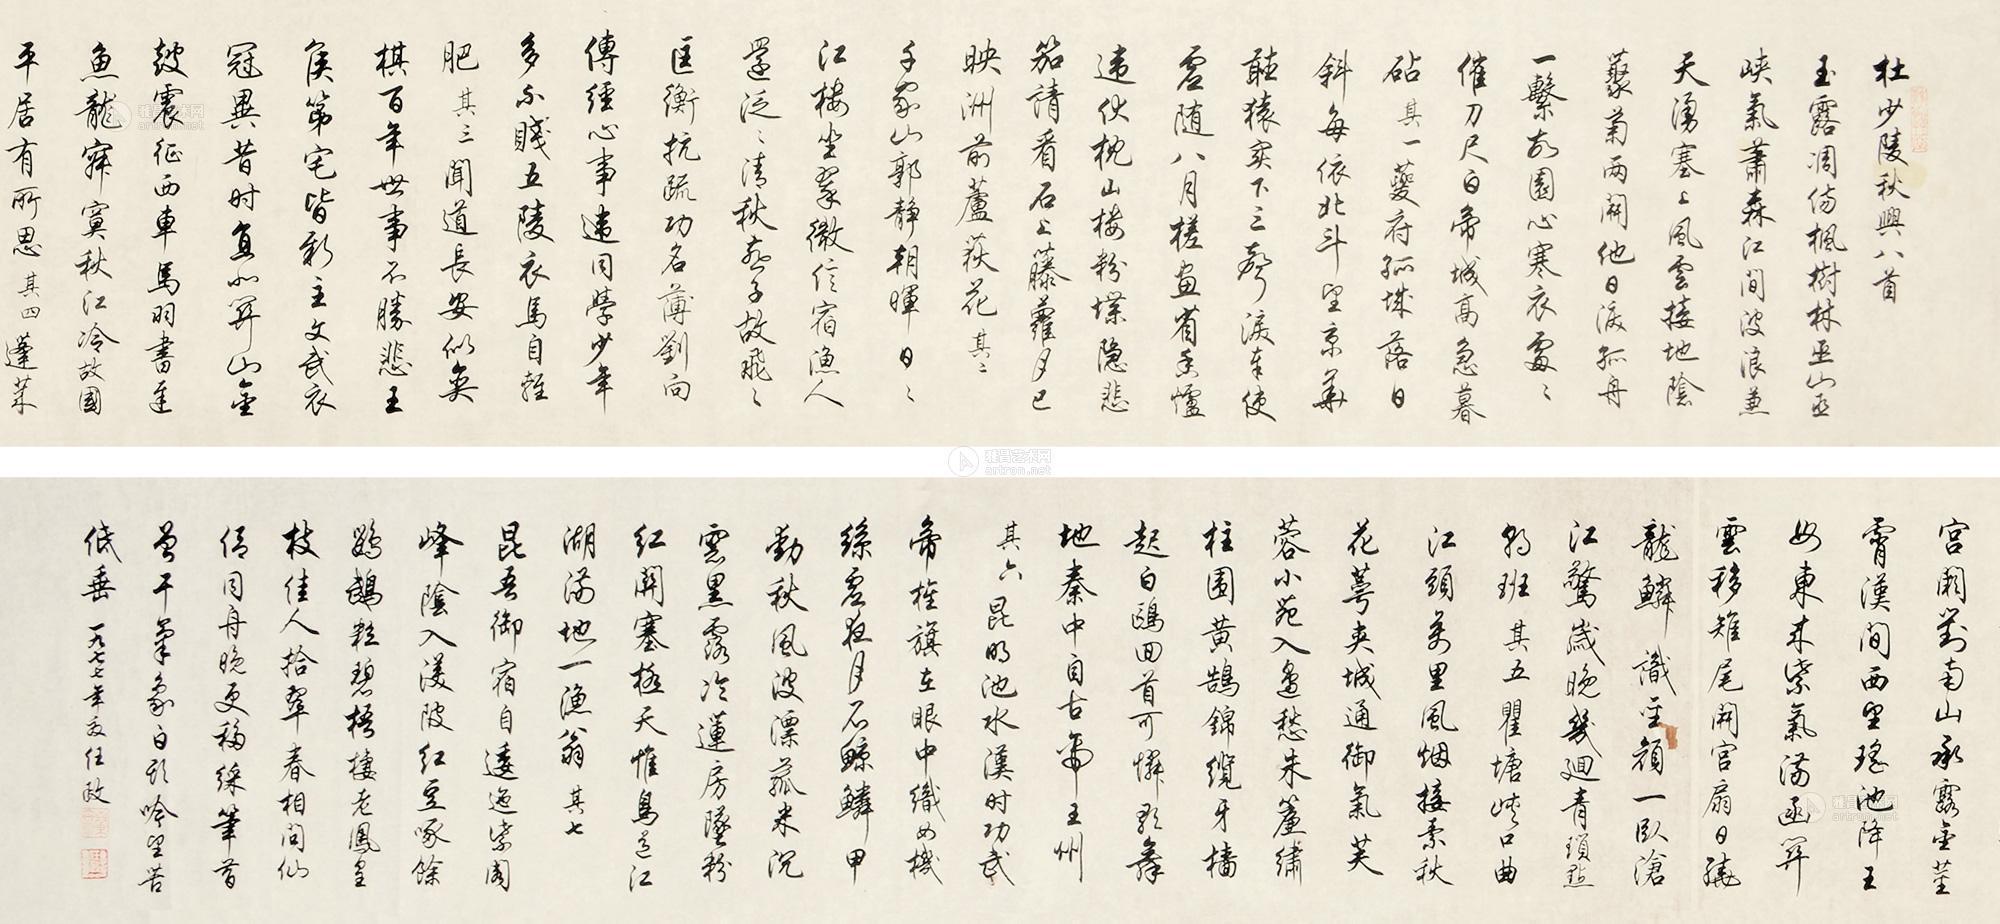 杜少陵秋興八首
玉露凋傷楓樹林巫山巫
峽氣蕭森江間波浪兼
天湧塞上風雲接地陰
叢菊兩開他日淚孤舟
一繫故園心寒衣處〻
催刀尺白帝城高急暮
砧 其一 夔府孤城落日
斜每依北斗望京華
聽猿實下三聲淚奉使
虛随八月槎畫省香爐
違伏枕山樓粉堞隐悲
笳請看石上藤蘿月已
映洲前蘆荻花 其二
千家山郭静朝暉日〻
江樓坐翠微信宿漁人
還泛〻清秋燕子故飛〻
匡衡抗疏功名薄劉向
傳經心事違同學少年
多不賤五陵衣馬自輕
肥 其三 聞道長安似奕
棋百年世事不勝悲王
侯第宅皆新主文武衣
冠異昔时直北關山金
鼓震征西車馬羽書遲
魚龍寂寞秋江冷故國
平居有所思 其四 蓬萊
宫闕對南山承露金莖
霄漢間西望瑤池降王
母東来紫氣滿函關
雲移雉尾開宫扇日繞
龍鱗識聖顏一臥滄
江驚歲晚幾廻青瑣點
朝班 其五 瞿塘峽口曲
江頭萬里風烟接素秋
花萼夹城通御氣芙
蓉小苑入邊愁朱簾繡
柱围黄鵠錦纜牙檣
起白鷗回首可憐歌舞
地秦中自古帝王州
其六 昆明池水漢时功武
帝旌旗在眼中織女機
絲虛夜月石鯨鱗甲
動秋風波漂菰米沉
雲黑露冷蓮房墜粉
红關塞極天惟鳥道江
湖滿地一漁翁 其七
昆吾御宿自逶迤紫閣
峰陰入渼陂红豆啄餘
鸚鵡粒碧梧棲老鳳皇
枝佳人拾翠春相問仙
侣同舟晚更移綵筆昔
曾干氣象白頭吟望苦
低垂 一九七七年夏任政
雅昌艺术网
artron.net